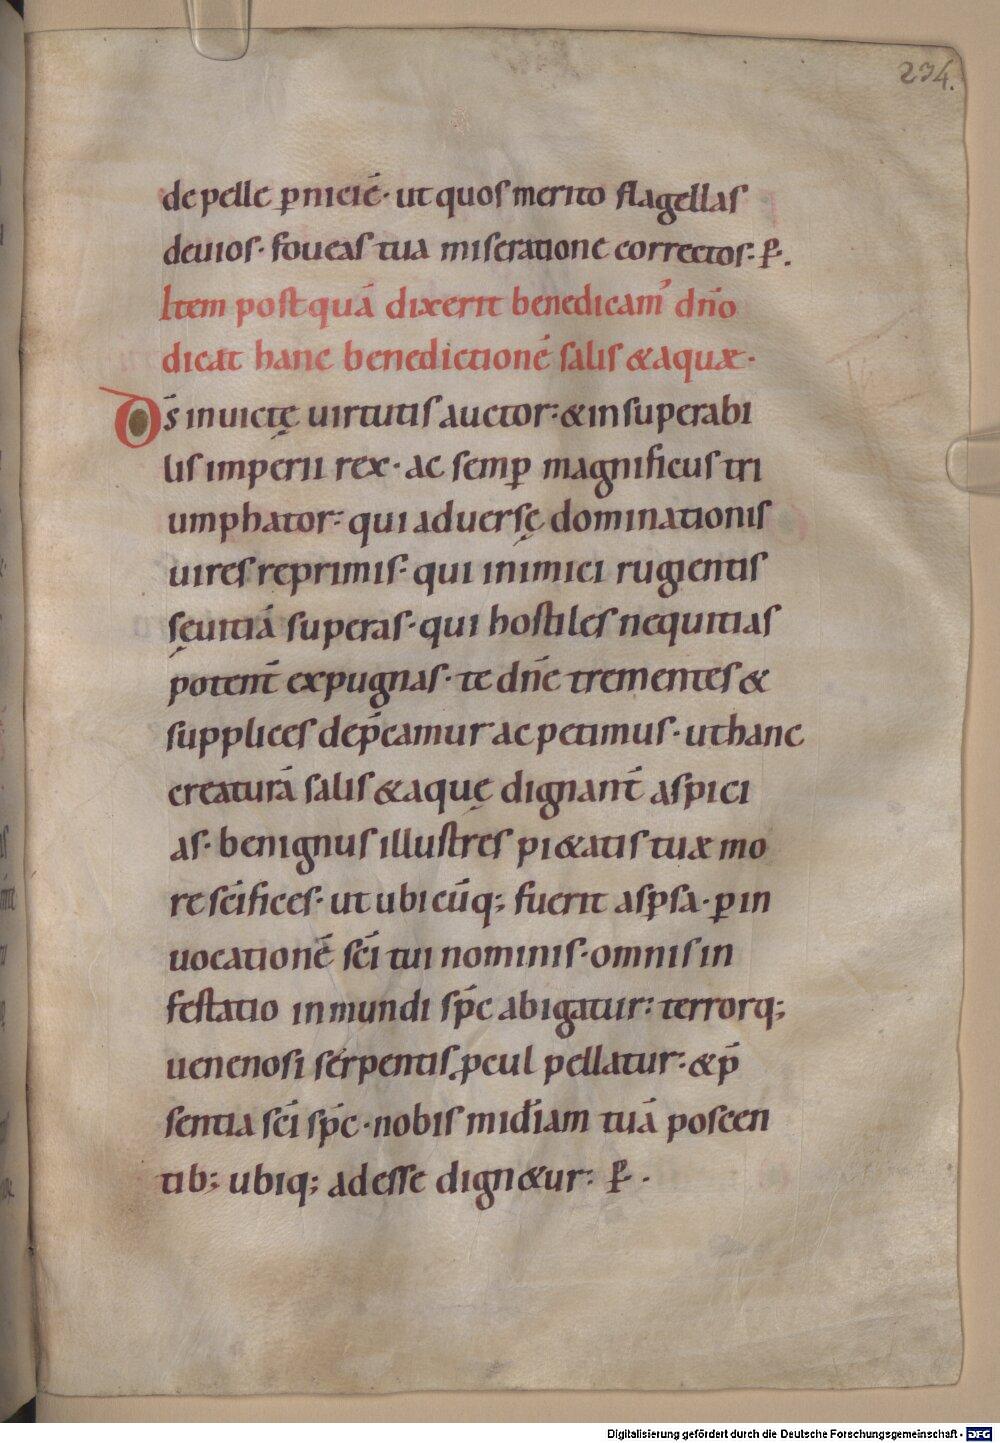 234.
depelle ꝑniciē· ut quos merito flagellas
deuios· foueas tua miseratione correctos· ꝑ.
Item postquā dixerit benedicam' dn̄o
dicat hanc benedictionē salis & aquæ·
Ds̄ inuictę uirtutis auctor: & insuperabi
lis imperii rex· ac semꝑ magnificus tri
umphator: qui aduersę dominationis
uires reprimis· qui inimici rugientis
sęuitiā superas· qui hostiles nequitias
potent̄ expugnas· te dn̄e trementes &
supplices dep̄camur ac petimus· ut hanc
creaturā salis & aquę dignant̄ aspici
as· benignus illustres pi&atis tuæ mo
re sc̄ifices· ut ubicūq; fuerit aspsa· ꝑ in
uocationē sc̄i tui nominis· omnis in
festatio inmundi sp̄c abigatur: terrorq;
uenenosi serpentis ꝓcul pellatur: & p̄
sentia sc̄i sp̄c· nobis mid̄iam tuā poscen
tib; ubiq; adesse dign&ur: ꝑ·
Digitalisierung gefördert durch die Deutsche Forschungsgemeinschaft - DFG